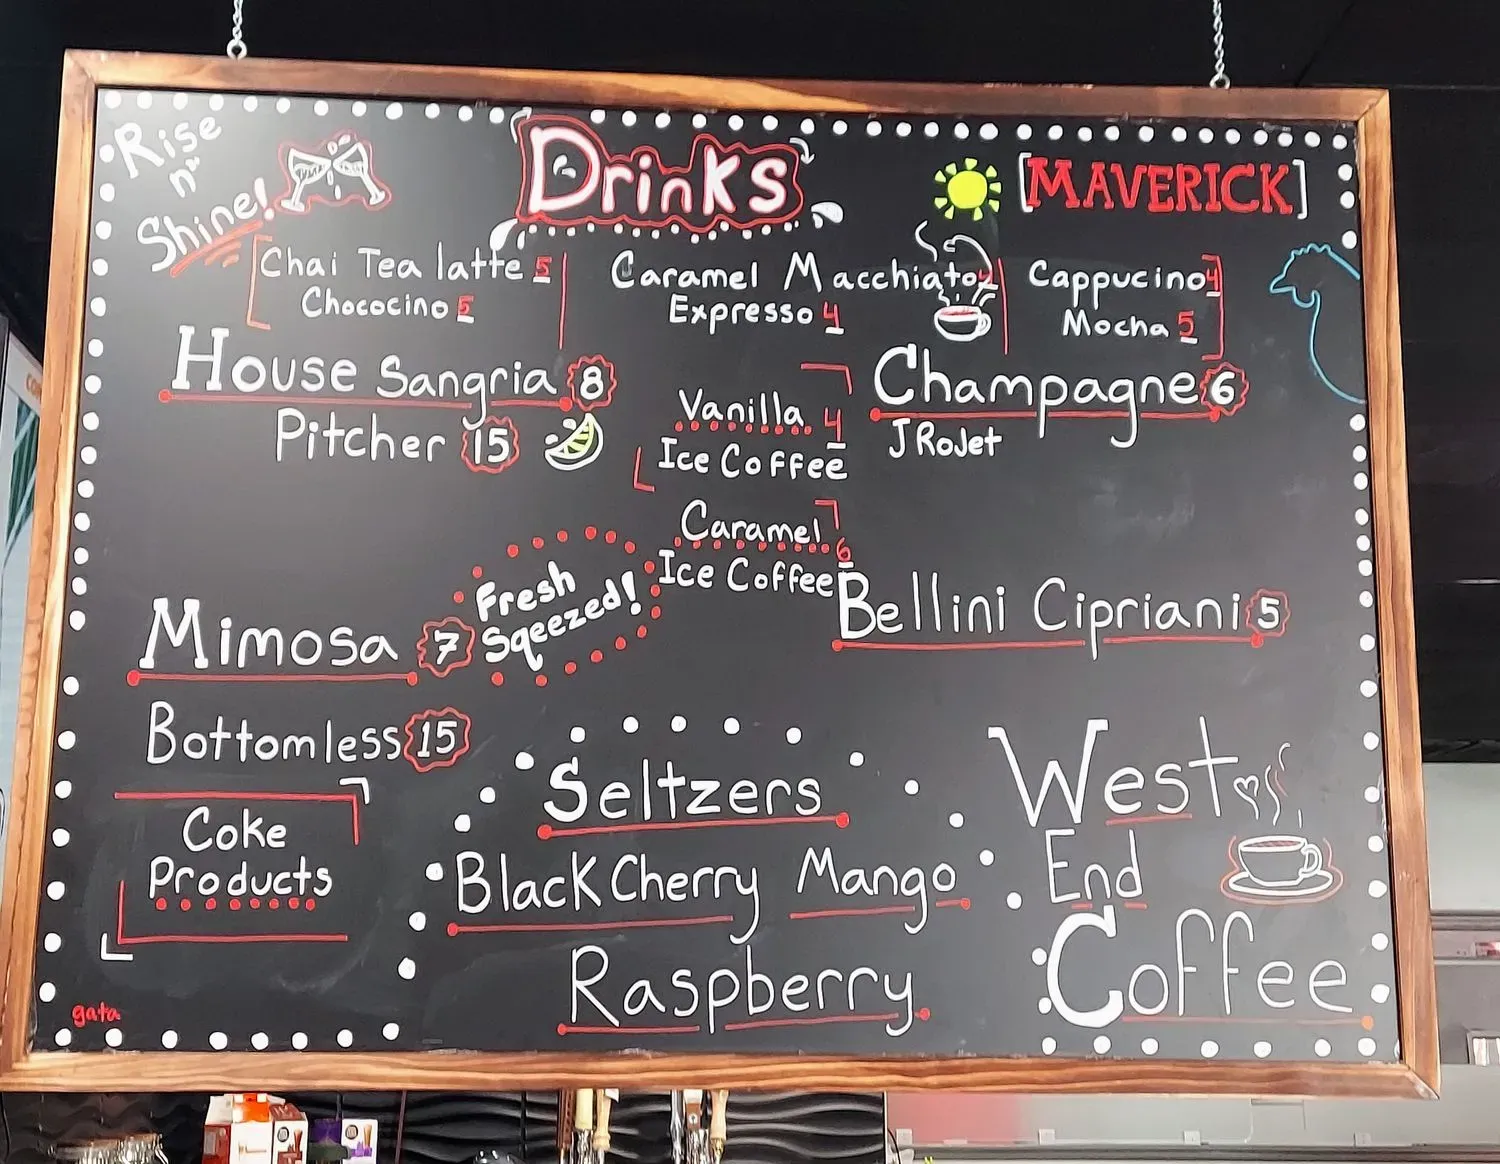 Rise
n'
Shine!
Drinks
[MAVERICK]
Chai Tea latte 5
Chococino 5
Caramel Macchiato
Expresso 4
Cappucino 4
Mocha 5
House Sangria 8
Pitcher 15
Vanilla 4
Ice Coffee
Champagne 6
J RoJet
Caramel 6
Ice Coffee
Fresh
Sqeezed!
Mimosa 7
Bellini Cipriani 5
Bottomless 15
Coke
Products
Seltzers
Black Cherry Mango
Raspberry
West
End
Coffee
gata